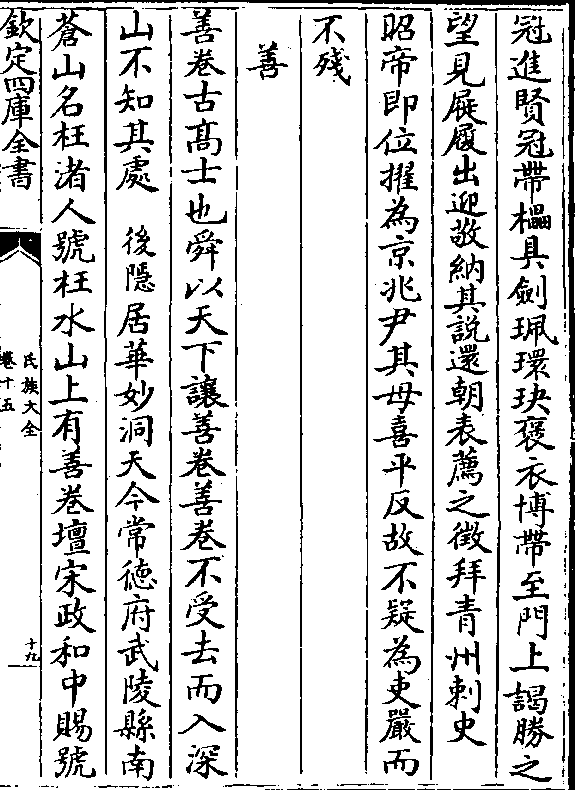 冠進賢冠帶櫑具劍珮環玦褒衣博帶至門上謁勝之
望見屣履出迎敬納其說還朝表薦之徵拜青州刺史
昭帝即位擢為京兆尹其母喜平反故不疑為吏嚴而
不殘
善
善卷古高士也舜以天下讓善卷善卷不受去而入深
山不知其處　後隱居華妙洞天今常徳府武陵縣南
蒼山名枉渚人號枉水山上有善卷壇宋政和中賜號
欽定四庫全書
氏族大全
卷十五
十九